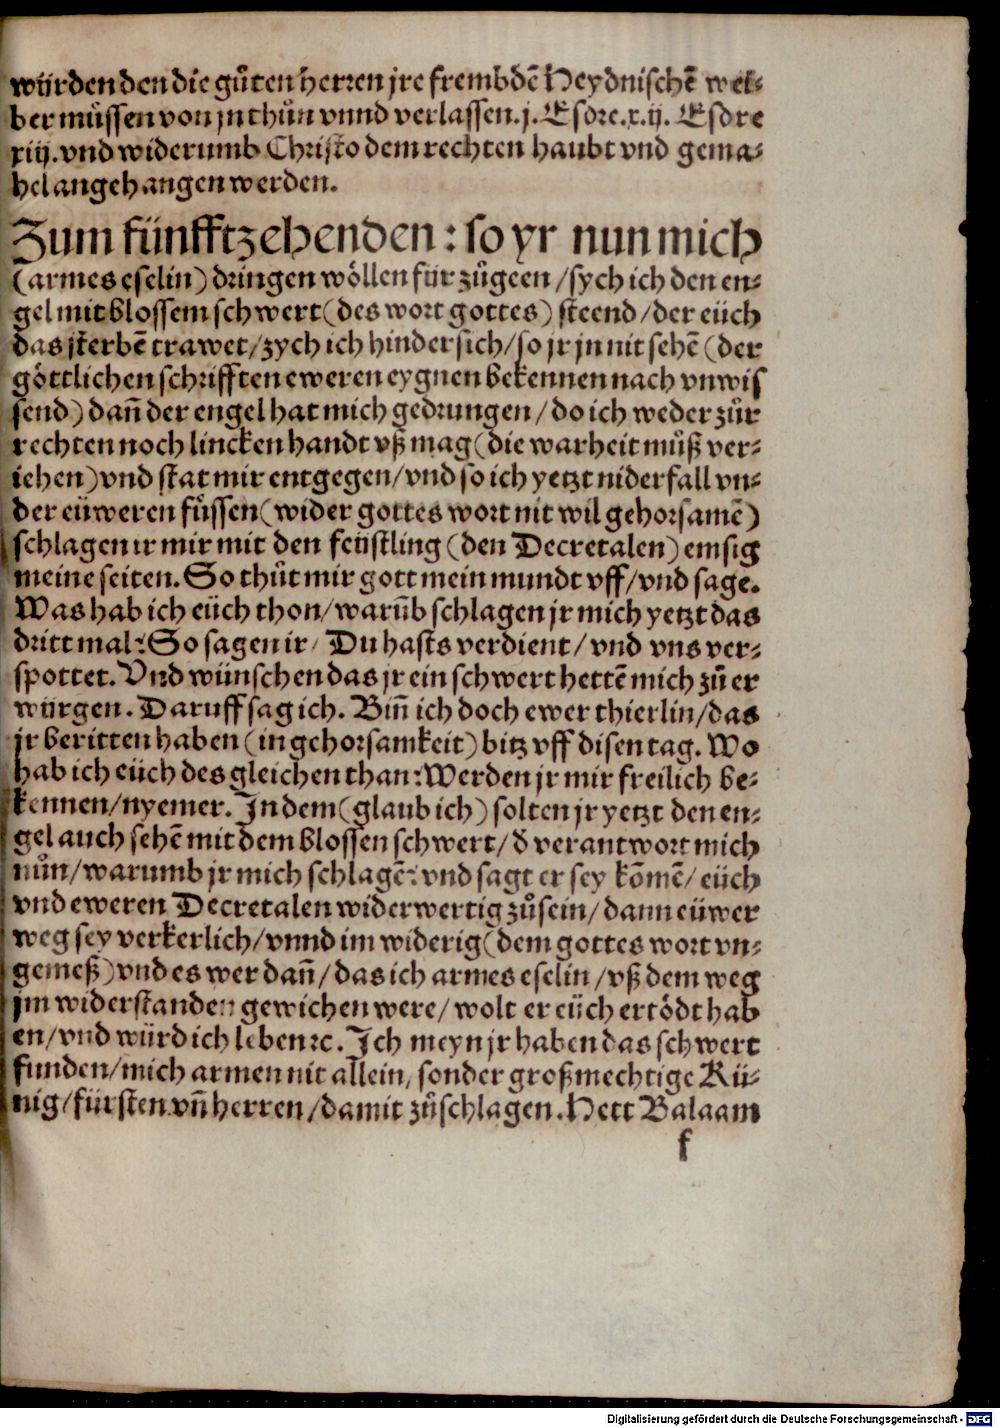 würden den die gůten herren jre frembdē Heydnischē wei-
ber můssen von jn thůn vnnd verlassen. j. Esdre. x. ij. Esdre
xiij. vnd widerumb Christo dem rechten haubt vnd gema-
hel angehangen werden.
Zum fünfftzehenden: so yr nun mich
(armes eselin) dringen wöllen für zůgeen/sych ich den en-
gel mit blossem schwert (des wort gottes) steend/der eüch
das sterbē trawet/zych ich hindersich/so jr jn nit sehē (der
göttlichen schrifften eweren eygnen bekennen nach vnwis
send) dañ der engel hat mich gedrungen/do ich weder zůr
rechten noch lincken handt vß mag (die warheit můß ver-
iehen) vnd stat mir entgegen/vnd so ich yetzt niderfall vn-
der eüweren fůssen (wider gottes wort nit wil gehorsamē)
schlagen ir mir mit den feüstling (den Decretalen) emsig
meine seiten. So thůt mir gott mein mundt vff/vnd sage.
Was hab ich eüch thon/warūb schlagen jr mich yetzt das
dritt mal? So sagen ir/ Du hasts verdient/vnd vns ver-
spottet. Vnd wünschen das jr ein schwert hettē mich zů er
würgen. Daruff sag ich. Biñ ich doch ewer thierlin/das
jr beritten haben (in gehorsamkeit) bitz vff disen tag. Wo
hab ich eüch des gleichen than? Werden jr mir freilich be-
kennen/nyemer. In dem (glaub ich) solten jr yetzt den en-
gel auch sehē mit dem blossen schwert/đ verantwort mich
nůn/warumb jr mich schlagē? vnd sagt er sey kōmē/eüch
vnd eweren Decretalen widerwertig zůsein/dann eüwer
weg sey verkerlich/vnnd im widerig (dem gottes wort vn-
gemeß) vnd es wer dañ/das ich armes eselin/vß dem weg
jm widerstanden gewichen were/wolt er eüch ertödt hab
en/vnd würd ich leben ꝛc. Ich meyn jr haben das schwert
funden/mich armen nit allein/sonder großmechtige Kü-
nig/fürsten vñ herren/damit zůschlagen. Hett Balaam
f
Digitalisierung gefördert durch die Deutsche Forschungsgemeinschaft - DFG